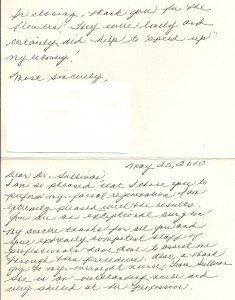 In closing, thank you for the
flowers! They were lovely and
certainly did help to "speed up"
my recovery!
Most sincerely,
May 25, 2010
Dear Dr. Sullivan,
I am so pleased that I chose you to
perform my facial rejuvenation. I am
extremely pleased with the results.
You are an exceptional surgeon.
My sincere thanks for all you and
your extremely competent staff of
professionals have done to assist me
through this procedure. Also, a thank
you to my overnight nurse,
She is an outstanding nurse and
very skilled at her profession.